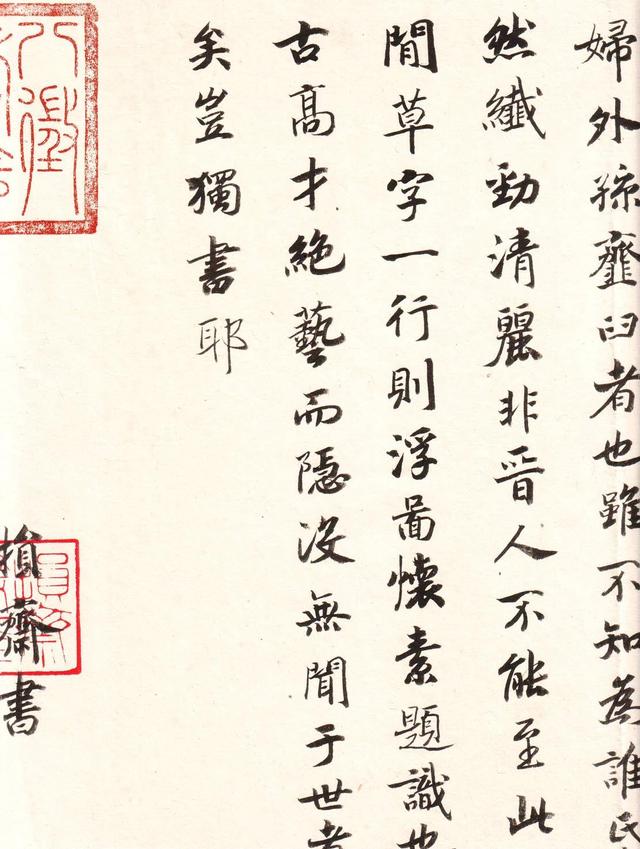 婦外孫齏臼者也雖不知為誰氏
然纖勁清麗非晉人不能至此
閒草字一行則浮圖懷素題識也
古高才絕藝而隱沒無聞于世者
矣豈獨書耶
損齋書